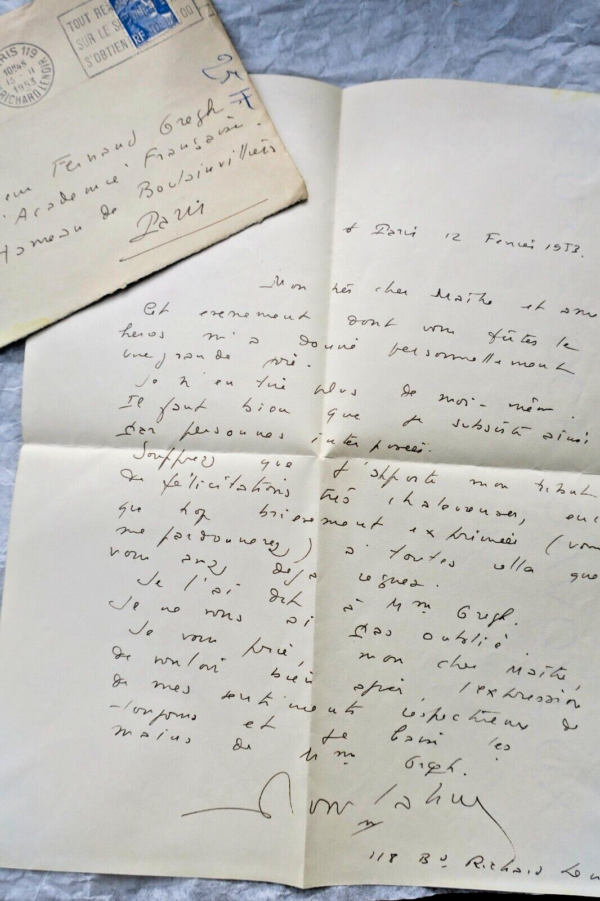 TOUT RE
SUR LE
S'OBTIEN
PARIS 119
10H45
1953
RICHARD LENOIR
RF
Fernand Gregh
Académie Française
Hameau de Boulainvilliers
Paris
Paris 12 Février 1953.
Mon très cher Maître et
Cet evenement dont vous fûtes le
heros m'a donné personnellement
une grande joie.
Je n'en tire plus de moi-même.
Il faut bien que je subsiste ainsi
par personnes interposées.
Souffrez que j'apporte mon tribut
de félicitations très chaleureuses,
que trop brievement exprimées (vous
me pardonnerez) à toutes celles que
vous avez deja reçues.
Je l'ai dit à Mme Gregh.
Je ne vous ai pas oublié.
Je vous prie, mon cher Maître,
de vouloir bien agréer l'expression
de mes sentiments respectueux de
toujours et je baise les
mains de Mme Gregh.
118 Bd Richard Len